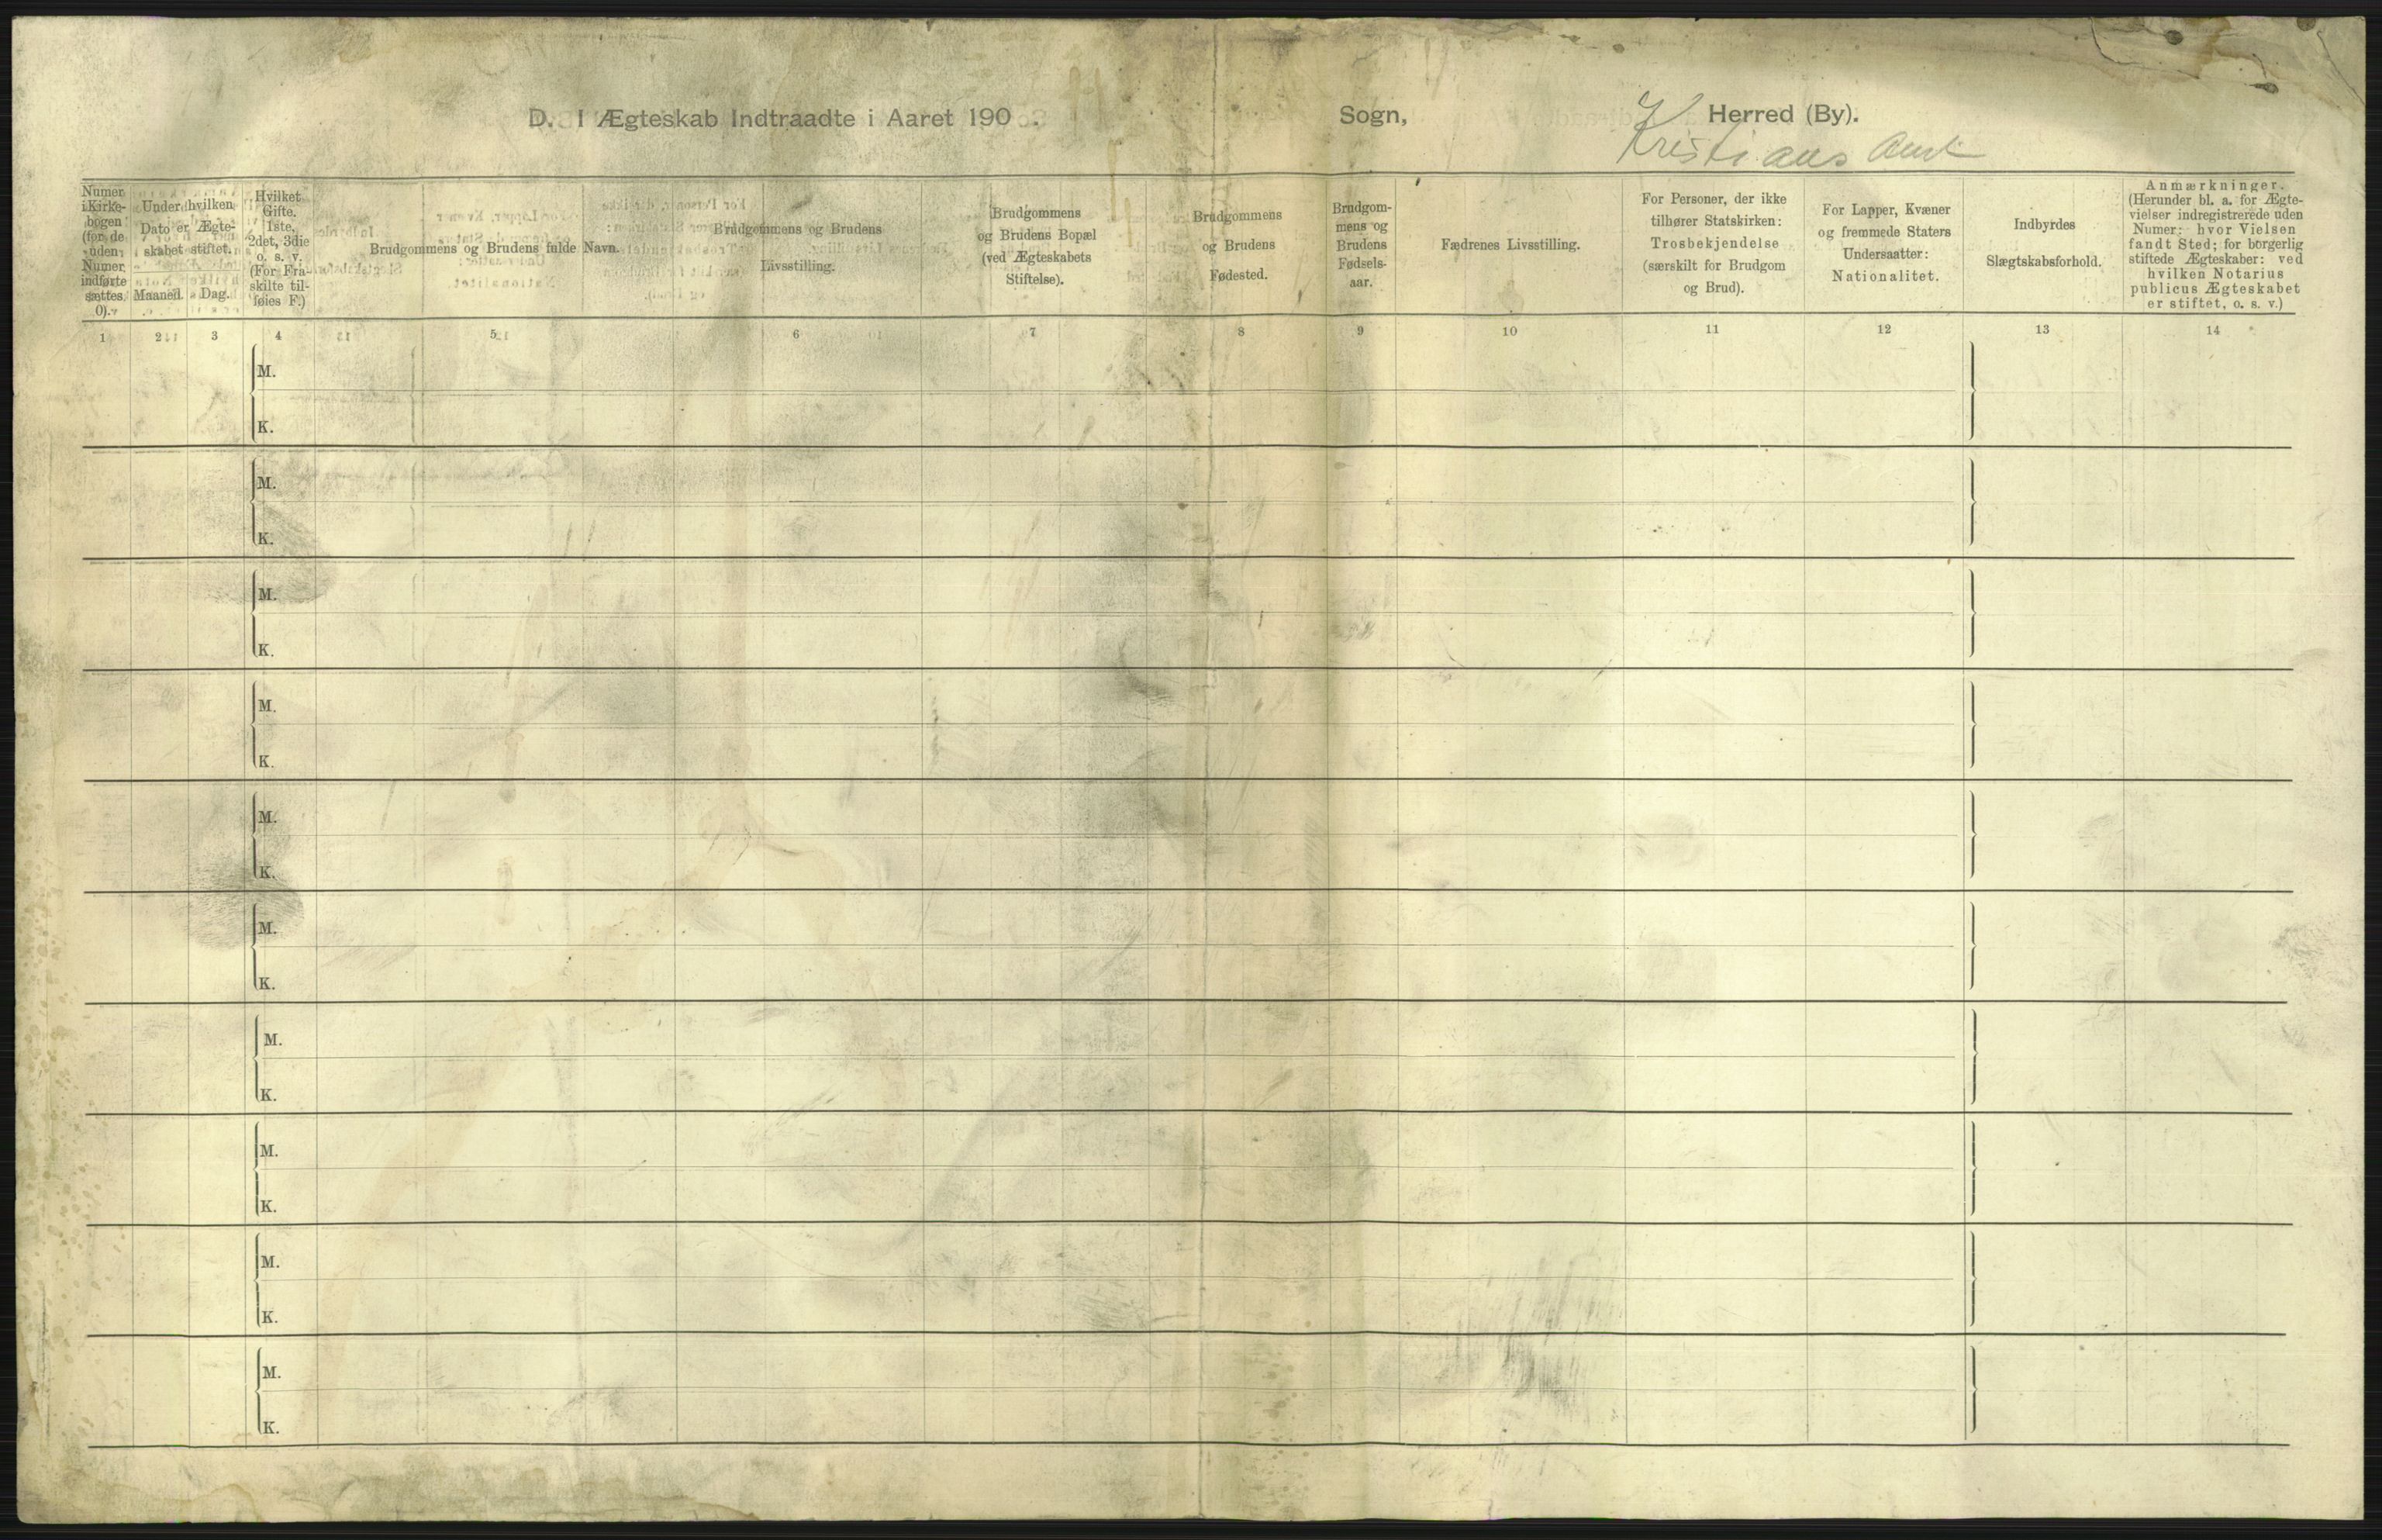 D. I Ægteskab Indtraadte i Aaret 190 . Sogn, Herred (By).
Kristians Amt
Numer
i Kirke-
bogen
(for de
uden
Numer
indførte
sættes
0).
Under hvilken
Dato er Ægte-
skabet stiftet.
Maaned. Dag.
Hvilket
Gifte.
1ste,
2det, 3die
o. s. v.
(For Fra-
skilte til-
føies F.)
Brudgommens og Brudens fulde Navn.
Brudgommens og Brudens
Livsstilling.
Brudgommens
og Brudens Bopæl
(ved Ægteskabets
Stiftelse).
Brudgommens
og Brudens
Fødested.
Brudgom-
mens og
Brudens
Fødsels-
aar.
Fædrenes Livsstilling.
For Personer, der ikke
tilhører Statskirken:
Trosbekjendelse
(særskilt for Brudgom
og Brud).
For Lapper, Kvæner
og fremmede Staters
Undersaatter:
Nationalitet.
Indbyrdes
Slægtskabsforhold.
Anmærkninger.
(Herunder bl. a. for Ægte-
vielser indregistrerede uden
Numer: hvor Vielsen
fandt Sted; for borgerlig
stiftede Ægteskaber: ved
hvilken Notarius
publicus Ægteskabet
er stiftet, o. s. v.)
1 2 3 4 5 6 7 8 9 10 11 12 13 14
M.
K.
M.
K.
M.
K.
M.
K.
M.
K.
M.
K.
M.
K.
M.
K.
M.
K.
M.
K.